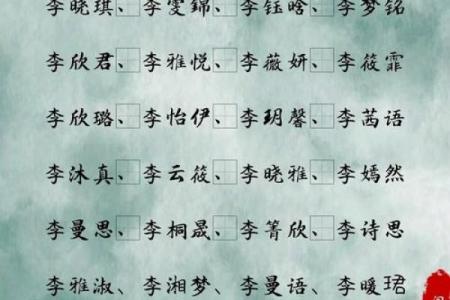 李晓琪、李雯錦、李钰晗、李梦铭
李欣君、李雅悦、李薇妍、李筱霏
李欣璐、李怡伊、李玥馨、李茜语
李沐真、李云筱、李晓雅、李嫣然
李曼思、李桐晟、李箐欣、李诗思
李雅淑、李湘梦、李曼语、李暖珺